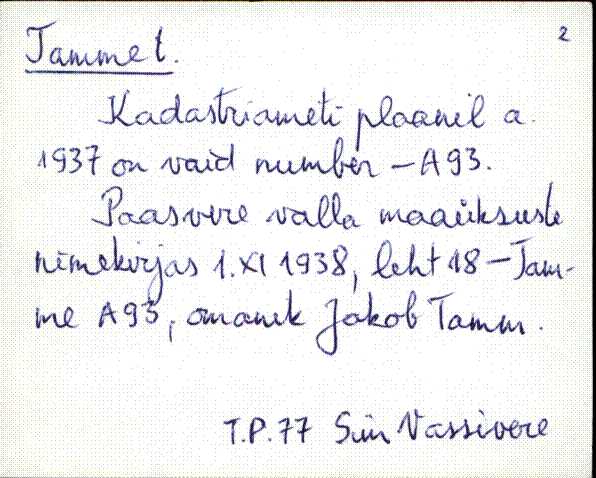 2
Tamme t.
Kadastriameti plaanil a.
1937 on vaid number – A93.
Paasvere valla maaüksuste
nimekirjas 1.XI 1938, leht 18 – Tam-
me A93, omanik Jakob Tamm.
T.P. 77 Siin Vassivere